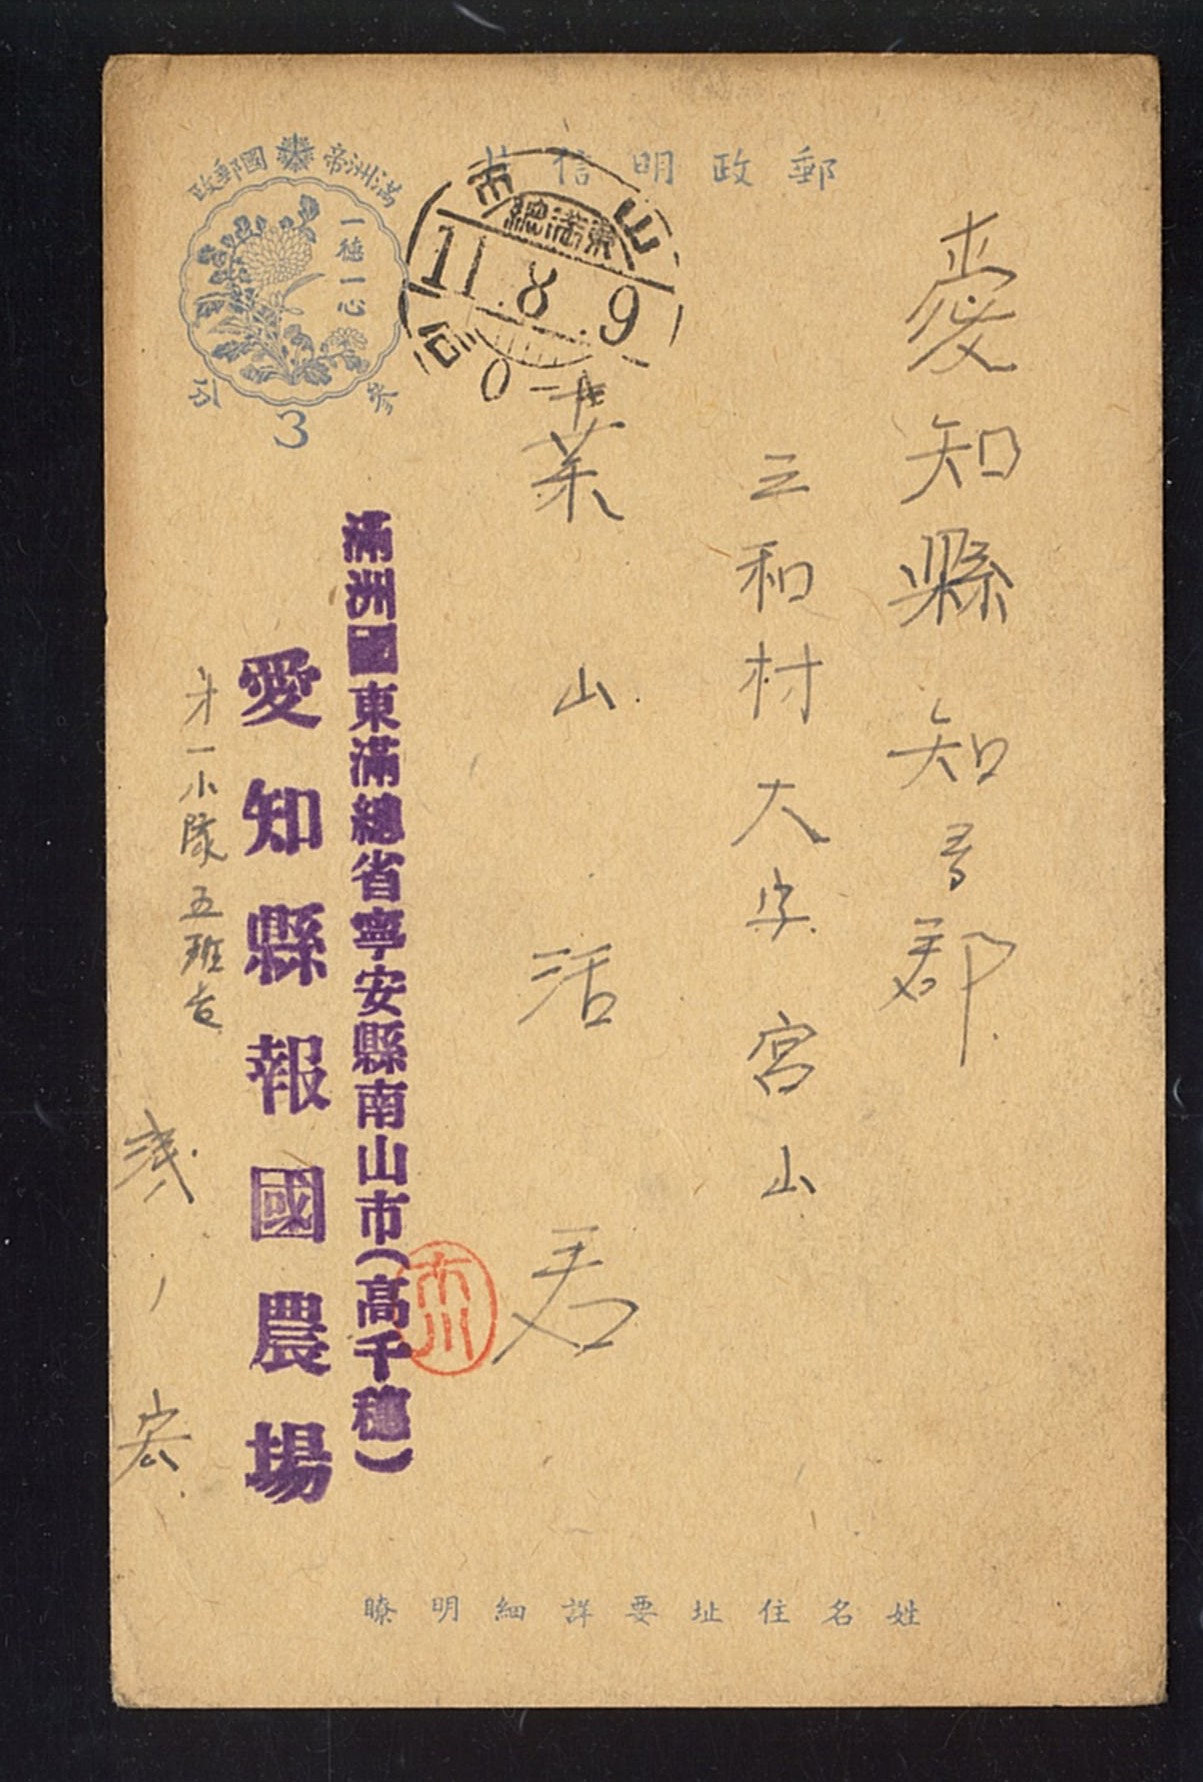 郵政明信片
滿洲帝國郵政
一德一心
參分
3
東滿總
山市
11.8.9
愛知縣知多郡
三和村大字宮山
葉山活君
滿洲國東滿總省寧安縣南山市(高千穗)
愛知縣報國農場
市川
才一小隊五班
宏
姓名住址要詳細明瞭